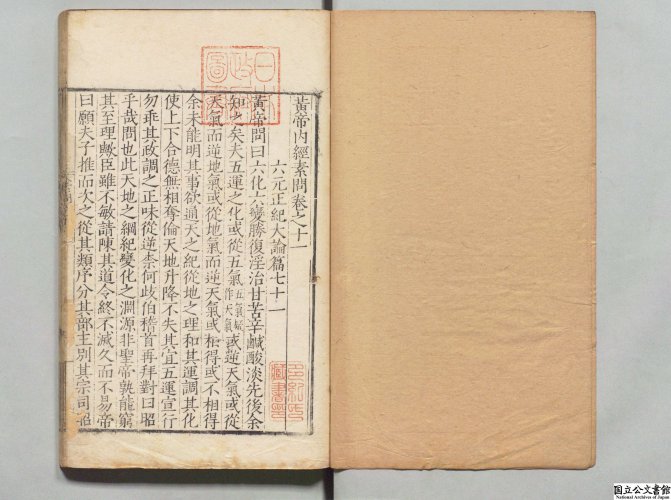 黃帝內經素問卷之十一
六元正紀大論篇七十一
黃帝問曰六化六變勝復淫治甘苦辛鹹酸淡先後余
知之矣夫五運之化或從五氣五氣疑作天氣或逆天氣或從
天氣而逆地氣或從地氣而逆天氣或相得或不相得
余未能明其事欲通天之紀從地之理和其運調其化
使上下合德無相奪倫天地升降不失其宜五運宣行
勿乖其政調之正味從逆柰何歧伯稽首再拜對曰昭
乎哉問也此天地之綱紀變化之淵源非聖帝孰能窮
其至理歟臣雖不敏請陳其道令終不滅久而不易帝
曰願夫子推而次之從其類序分其部主別其宗司昭
国立公文書館
National Archives of Japan